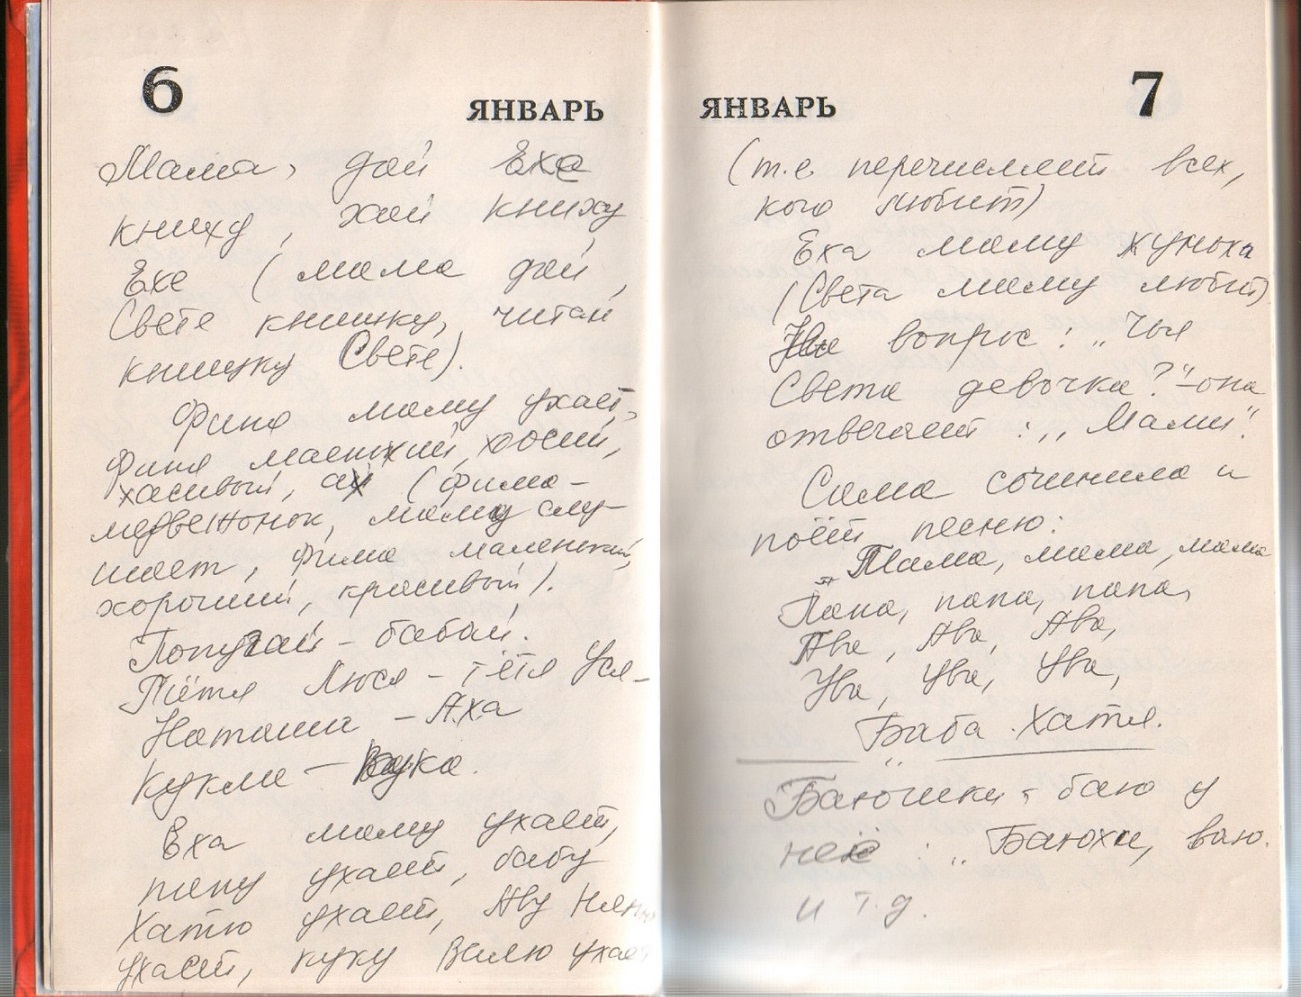 6
ЯНВАРЬ
Мама, дай Ехе
книху, хай книху
Ехе (мама дай
Свете книжку, читай
книжку Свете).
Фина маму ухает,
Финя маенький, хосий,
хасивый, ай (Фима-
медвежонок, маму слу-
шает, Фима маленький,
хороший, красивый).
Попугай - бабай.
Тётя Люся - тётя Уся -
Наташа - Аха
Кукла - кука.
Еха маму ухает,
папу ухает, бабу
Хатю ухает, Аву
ухает, куку Валю ухает
ЯНВАРЬ
7
(т.е перечисляет всех,
кого любит)
Еха маму
(Света маму любит)
На вопрос: „Чья
Света девочка?" - она
отвечает: „Мами".
Сама сочинила и
поёт песню:
„Мама, мама, мама
Папа, папа, папа,
Ава, Ава, Ава,
Ува, Ува, Ува,
Баба Хатя.
Баюшки, баю у
неё: „Баюхи, ваю.
и т.д.